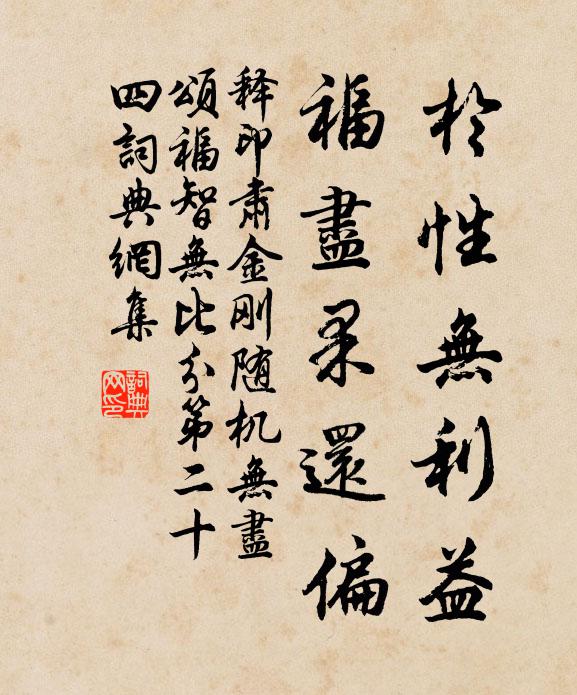 於性無利益
福盡果還偏
释印肃金刚随机無盡
頌福智無比分第二十
四詞典網集
詞典
网印